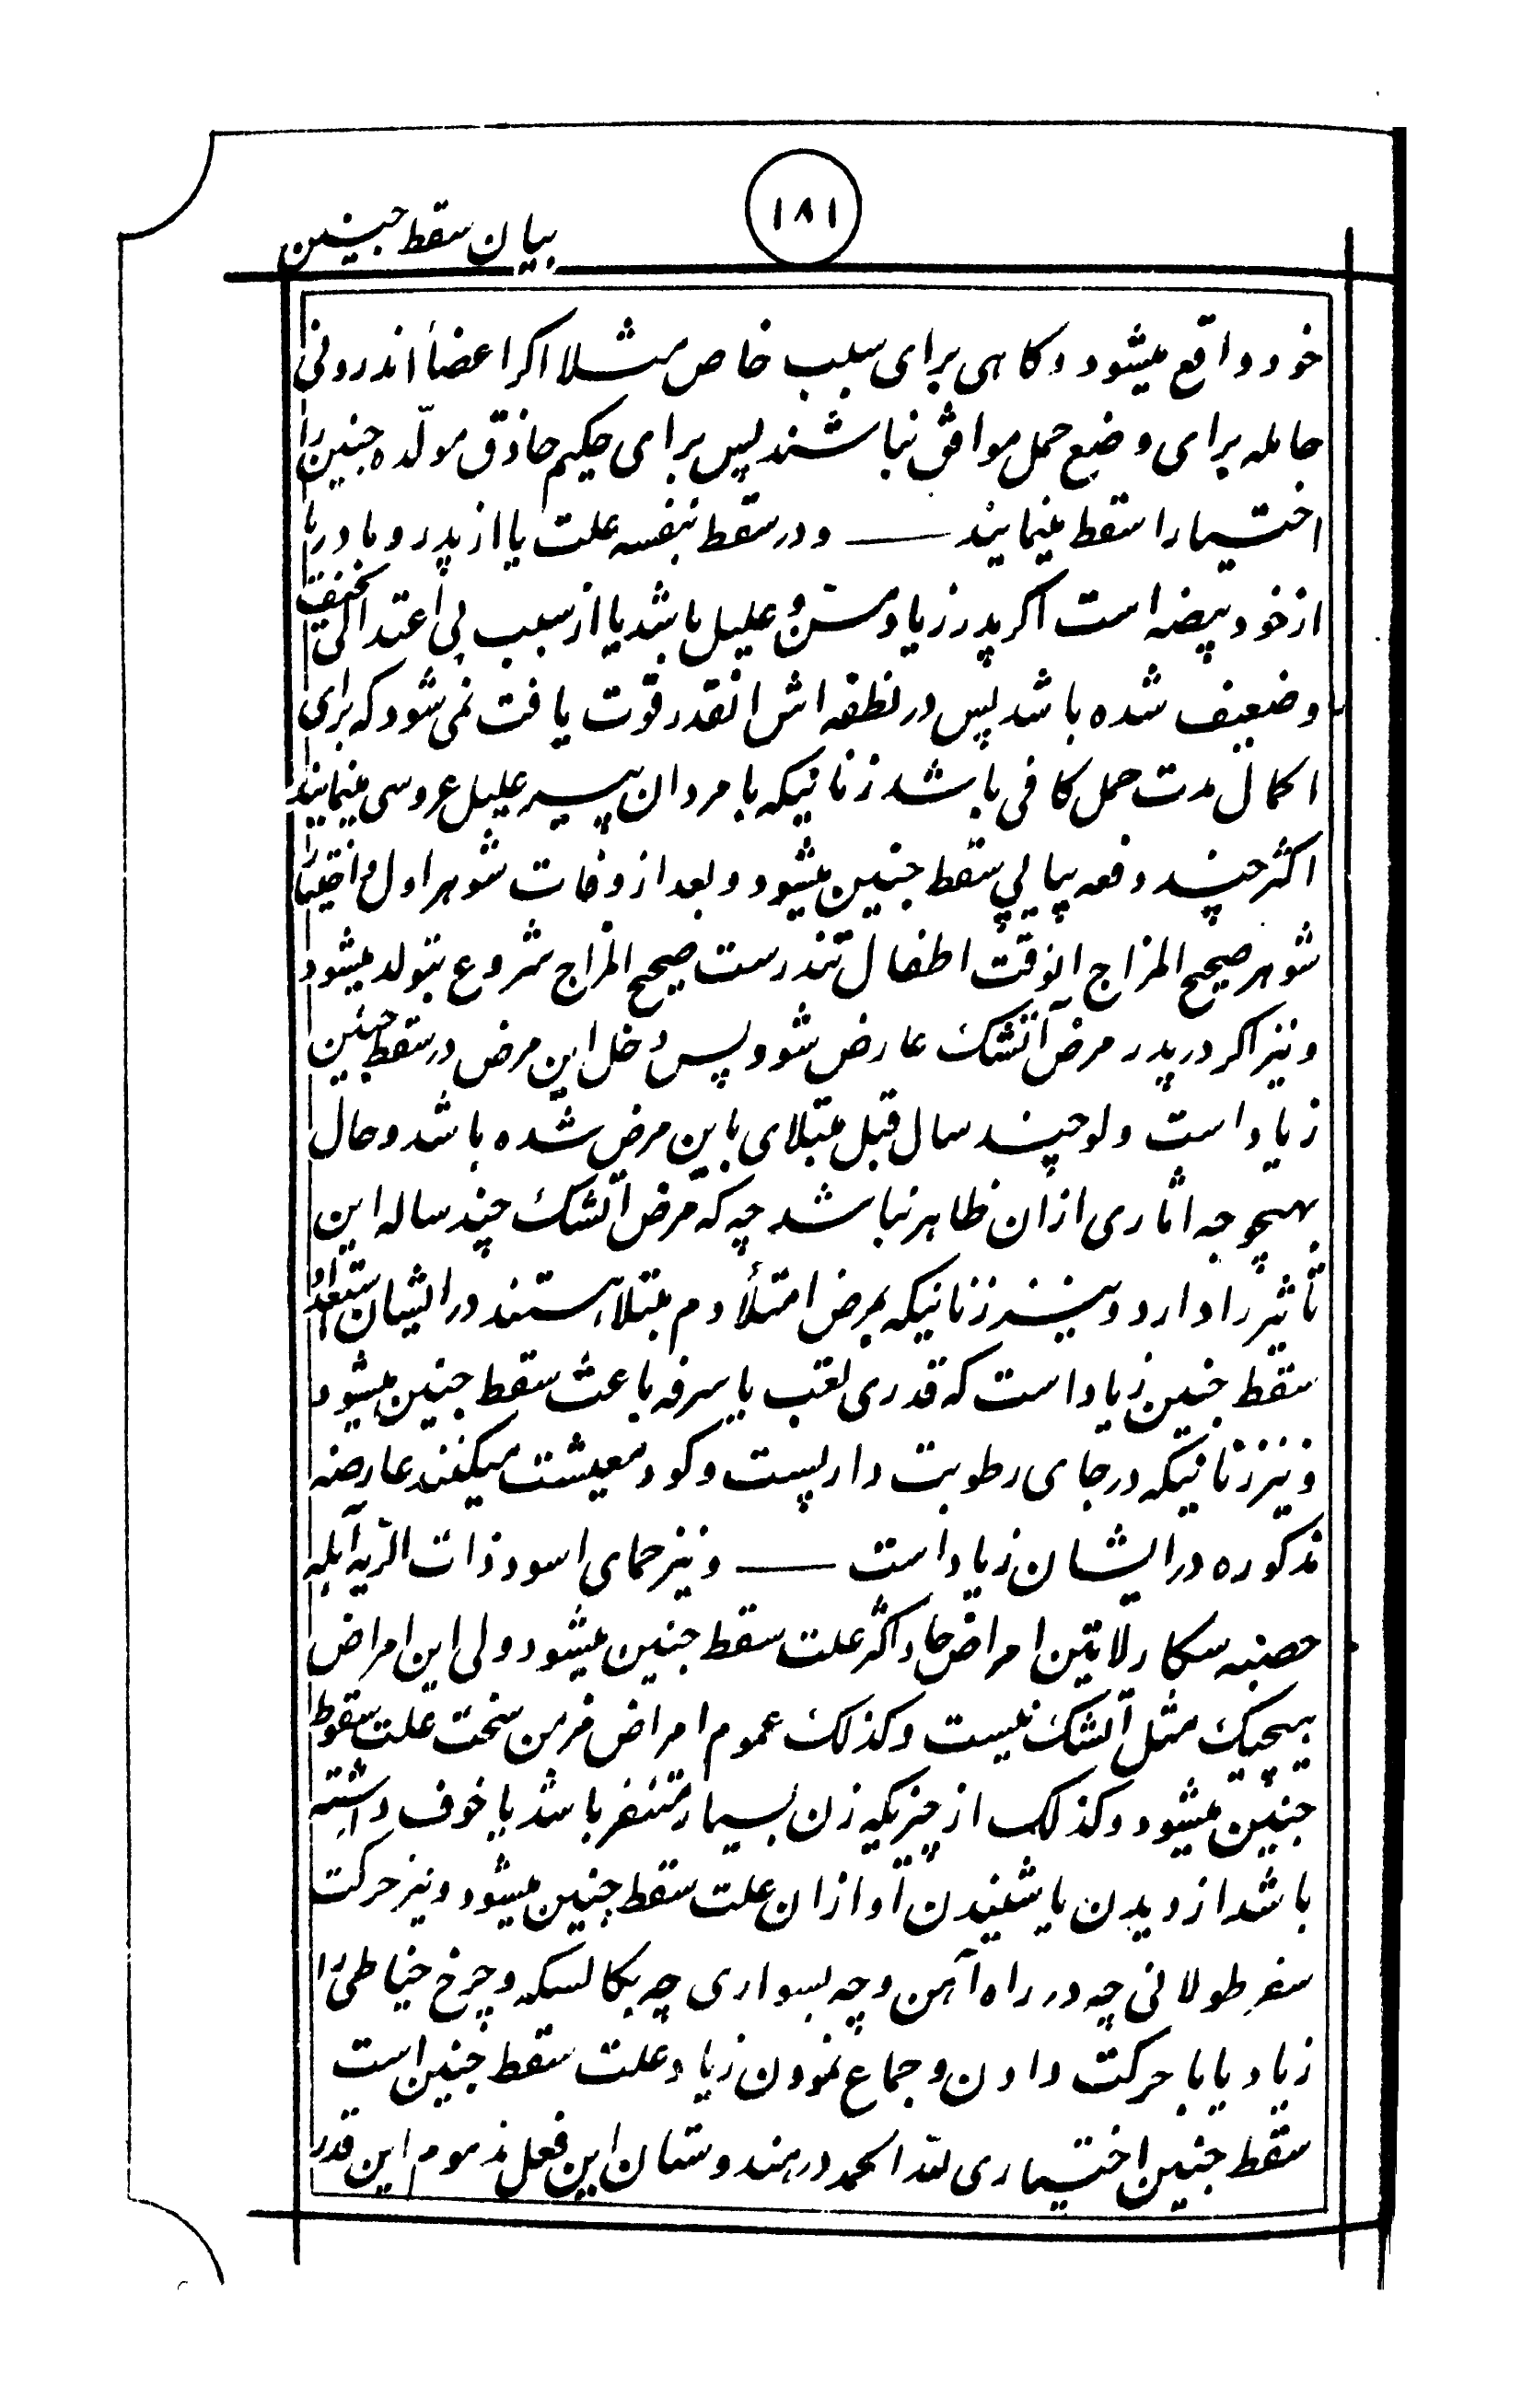 ۱۸۱
بیان سقط جنین
خود واقع میشود و کاهی برای سبب خاص مثلا اکر اعضأ اندرونی
حامله برای وضع حمل موافق نباشند پس برای حکیم حاذق مولّده جنین را
اختیارا سقط مینمایند — و در سقط بنفسه علت یا از پدر و مادر یا
از خود بیضه است اکر پدر زیاد مسنّ و علیل باشد یا از سبب بی اعتدالی خفیف
و ضعیف شده باشد پس در نطفه اش انقدر قوت یافت نمی شود که برای
اکمال مدت حمل کافی باشد زنانیکه با مردان پیر علیل عروسی مینمایند
اکثر چند دفعه پیاپی سقط جنین میشود و بعد از وفات شوهر اول و اختیار
شوهر صحیح المزاج انوقت اطفال تندرست صحیح المزاج شروع بتولد میشود
و نیز اکر در پدر مرض آتشک عارض شود پس دخل این مرض در سقط جنین
زیاد است ولو چند سال قبل مبتلای باین مرض شده باشد و حال
بهیچوجه اثاری ازان ظاهر نباشد چه که مرض آتشک چند ساله این
تأثیر را دارد و نیز زنانیکه بمرض امتلأ دم مبتلا هستند در ایشان استعداد
سقط جنین زیاد است که قدری تعب یا سرفه باعث سقط جنین میشود
و نیز زنانیکه در جای رطوبت دار پست و کود معیشت میکنند عارضه
مذکوره در ایشان زیاد است — و نیز حمای اسود ذات الرّیه آبله
حصبه سکارلاتین امراض حاد اکثر علت سقط جنین میشود ولی این امراض
هیچیک مثل آتشک نیست و کذلک عموم امراض مزمن سخت علت سقوط
جنین میشود و کذلک از چیزیکه زن بسیار متنفر باشد یا خوف داشته
باشد از دیدن یا شنیدن آواز ان علت سقط جنین میشود و نیز حرکت
سفر طولانی چه در راه آهن و چه بسواری چه بکالسکه و چرخ خیاطی را
زیاد با پا حرکت دادن و جماع نمودن زیاد علت سقط جنین است
سقط جنین اختیاری للّه الحمد در هندوستان این فعل مذموم این قدر